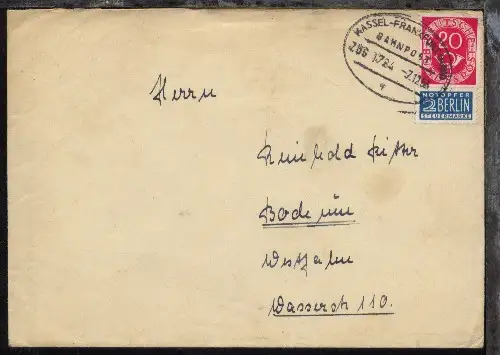 KASSEL-FRANKFURT
BAHNPOST
ZUG 1724 -7.12.5
20
DEUTSCHE
NOTOPFER
2 BERLIN
STEUERMARKE
Herrn
Reinhold Ritter
Bochum
Westfalen
Wasserstr 110.